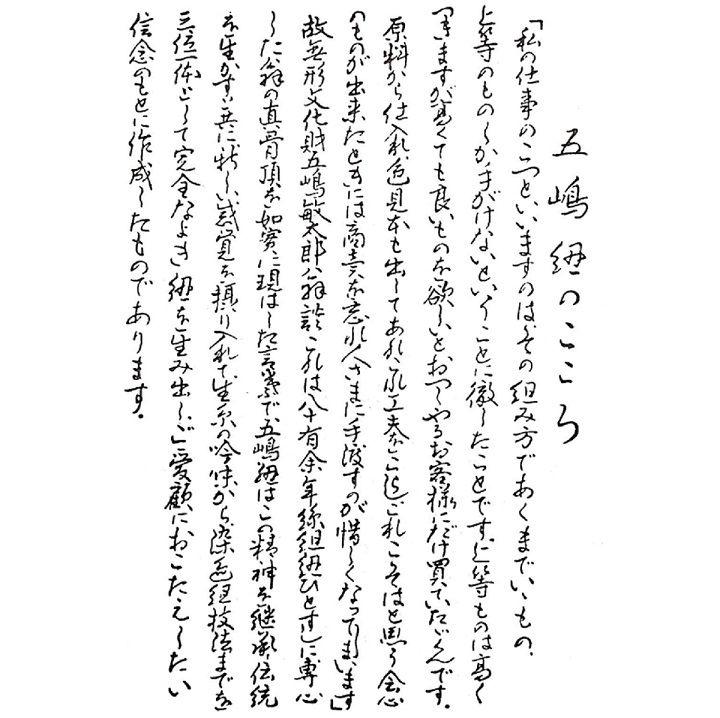 五嶋紐のこころ
「私の仕事のこつといいますのは、その組み方であくまでいいもの、
上等のものしか手がけないということに徹したことです。上等ものは高く
つきますが、高くても良いものを欲しいとおっしゃるお客様にだけ買っていただくんです。
原料から仕入れ、色見本も出してあれこれ工夫をこらしこれこそはと思う会心
のものが出来たときには商売を忘れ人さまに手渡すのが惜しくなってしまいます」
故無形文化財五嶋敏太郎翁談 これは八十有余年絲組紐ひとすじに専心
した翁の真骨頂を如実に現はした言葉で、五嶋紐はこの精神を継承、伝統
を生かすと共に新しい感覚を摂り入れて生糸の吟味から染色、組技法までを
三位一体として完全なよき紐を生み出し、ご愛顧におこたえしたい
信念のもとに作成したものであります。